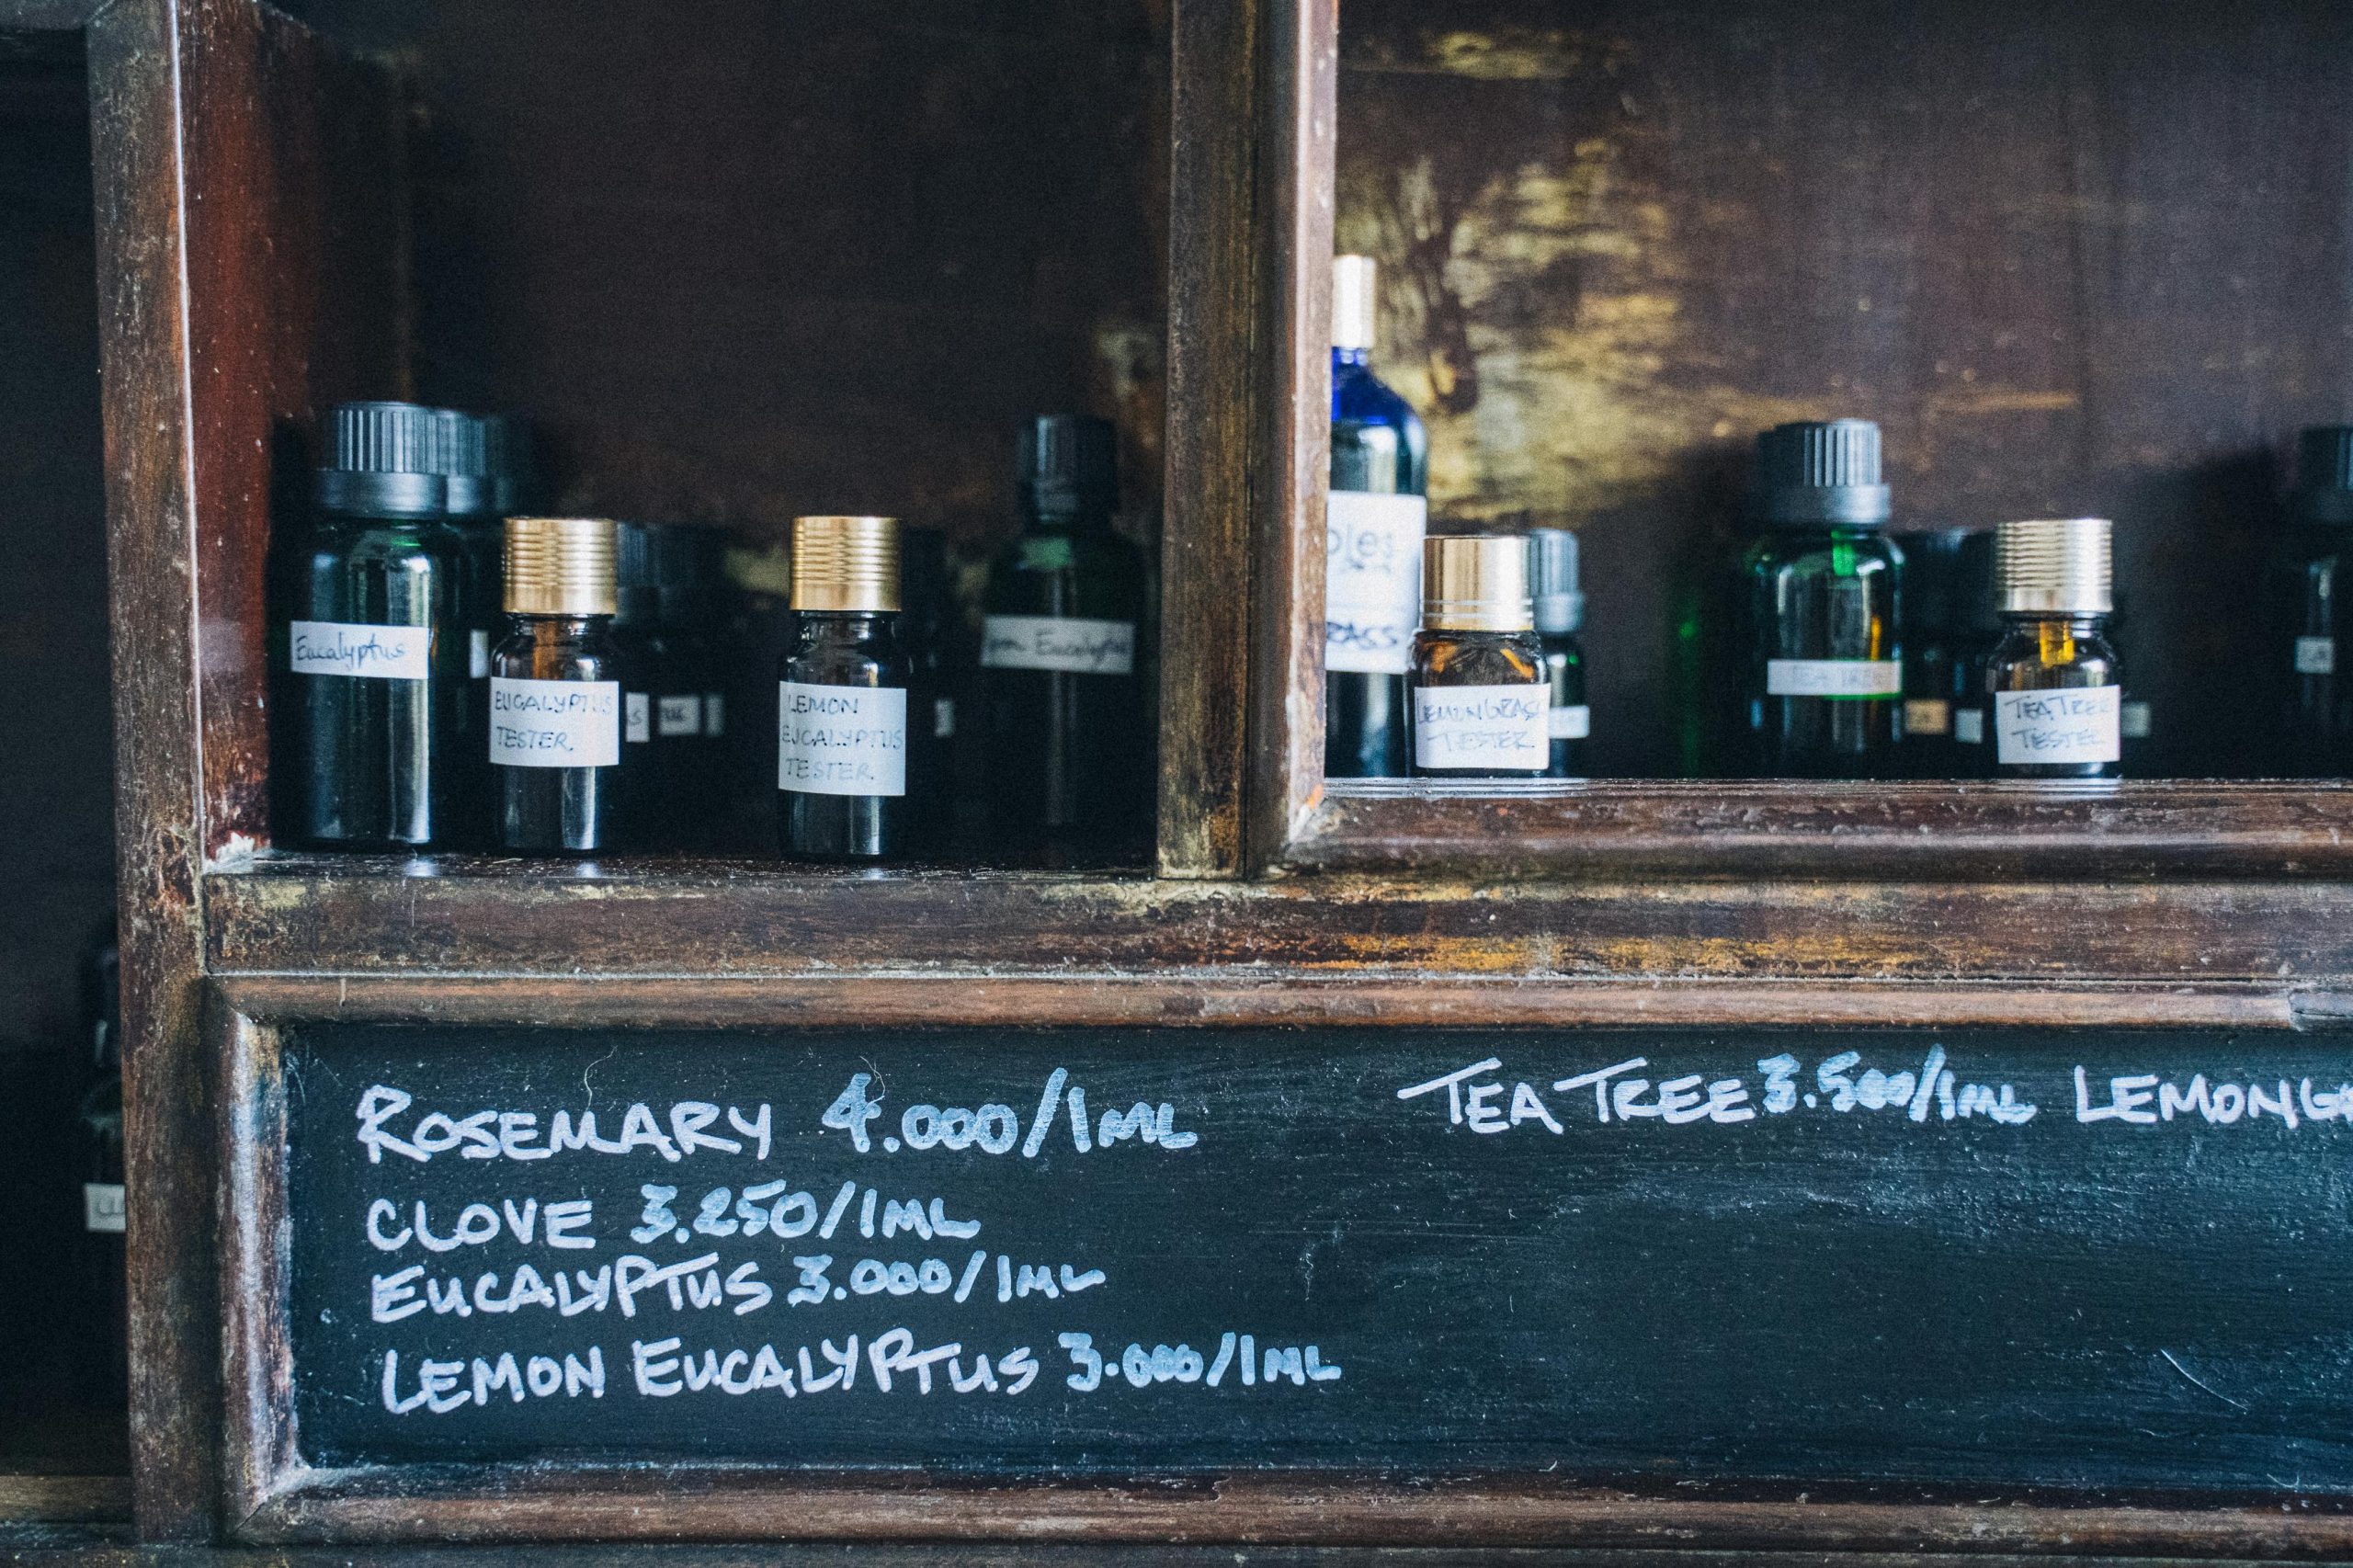 Eucalyptus
EUCALYPTUS
TESTER.
LEMON
EUCALYPTUS
TESTER
Eucalyptus
LEMONGRASS
TESTER
TEA TREE
TEA TREE
TESTER
ROSEMARY 4.000/1ML
CLOVE 3.250/1ML
EUCALYPTUS 3.000/1ML
LEMON EUCALYPTUS 3.000/1ML
TEA TREE 3.500/1ML LEMONG